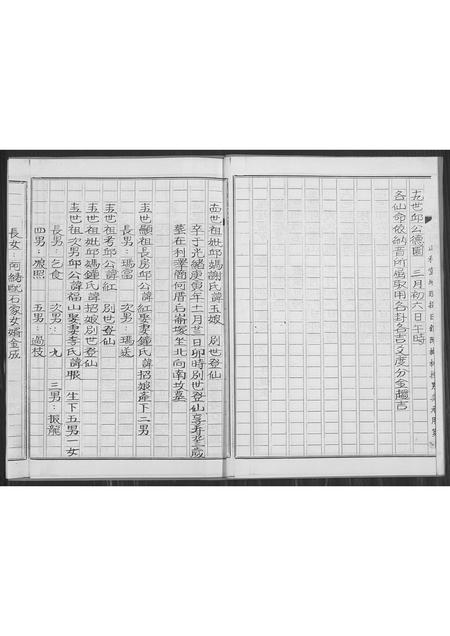 九世邱公德圖 三月初六日午時
各仙命皎納音所屬取用各卦各吉爻度分金趨吉
十四世祖妣邱媽謝氏諱玉娘 別世登仙
卒于光緒庚寅年十一月廿三日卯時別世登仙享壽 歲
墓在利澤簡何厝后崙塚坐北向南坟墓
十五世顯祖長房邱公諱紅娶妻鍾氏諱招娘產下二男
長男：瑪富 次男：瑪送
十五世祖考邱公諱紅 別世登仙
十五世祖妣邱媽鍾氏諱招娘別世登仙
十五世祖次男邱公諱福山娶妻李氏諱賬 生下五男一女
長男：乞食 次男：九 三男：振龍
四男：慷照 五男：過枝
長女 阿繡 石家女婿金成